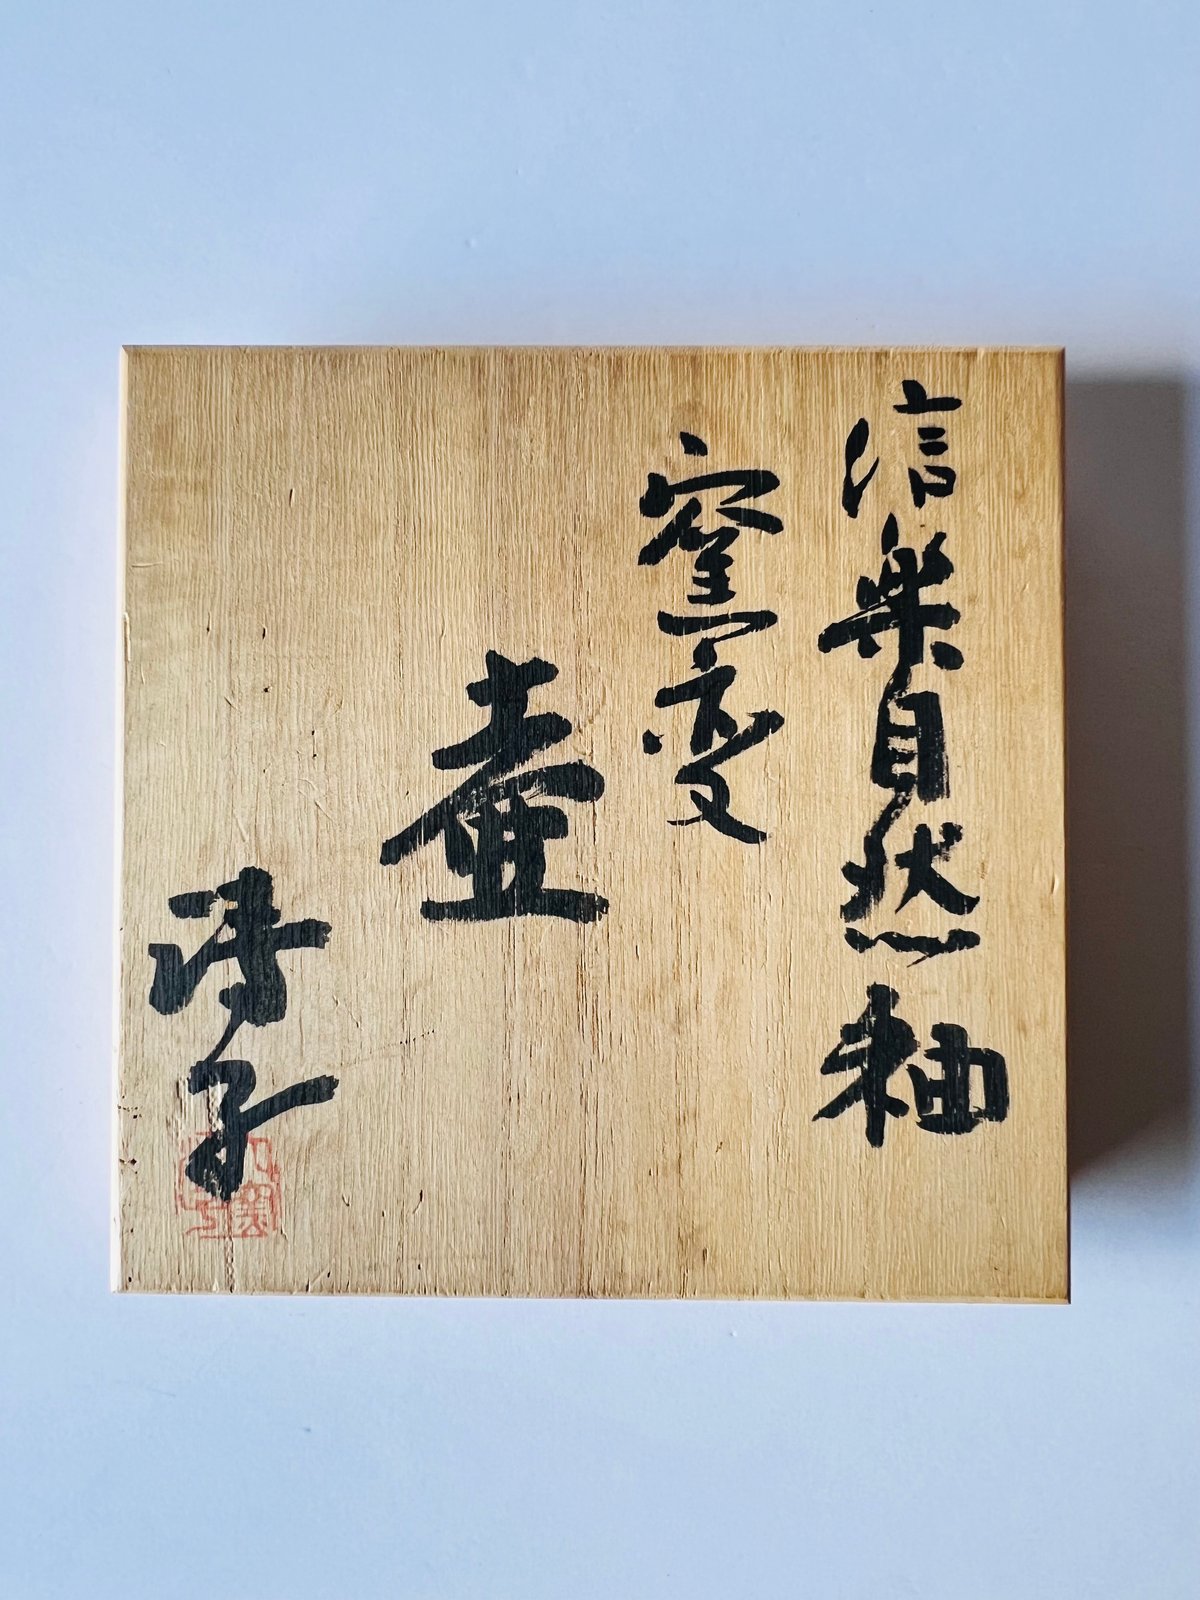 信楽自然釉
窯変
壷
清子